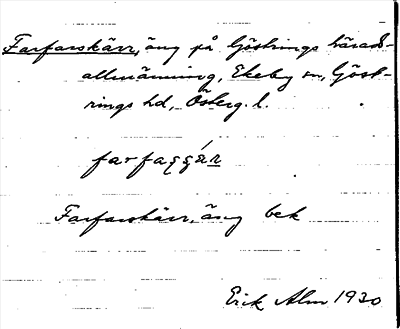 Farfarskärr, äng på Göstrings härads-
allmänning, Ekeby sn, Göst-
rings hd, Österg. l.
Farfarskärr, äng bek
Erik Alm 1930